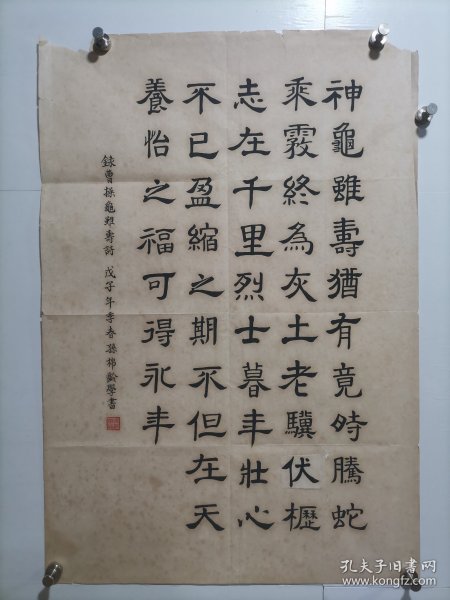 神龜雖壽猶有竟時騰蛇
乘霧終為灰土老驥伏櫪
志在千里烈士暮年壯心
不已盈縮之期不但在天
養怡之福可得永年
錄曹操龜雖壽詩 戊子年季春孫棉齡學書
孔夫子旧书网
www.kongfz.com